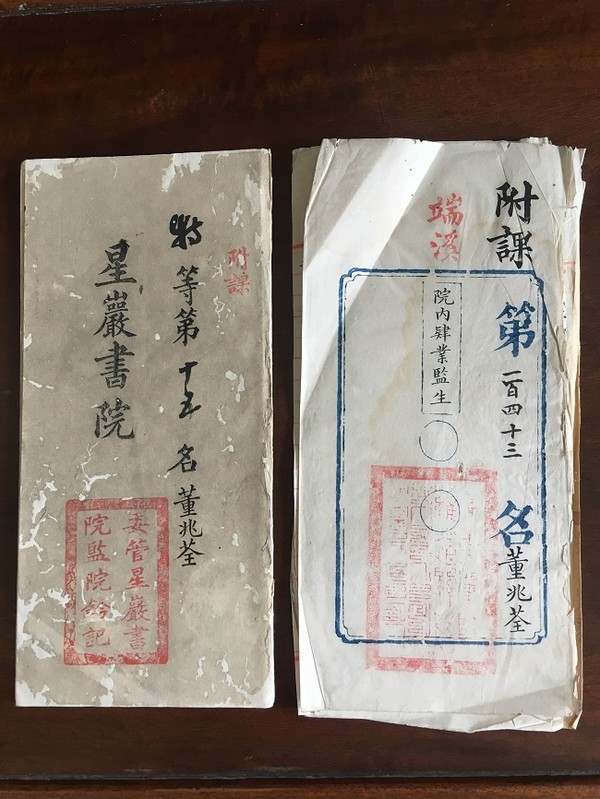 附課
特等第十五名董兆荃
星巖書院
委管星巖書
院監院鈐記
附課第一百四十三名董兆荃
端溪
院內肄業監生